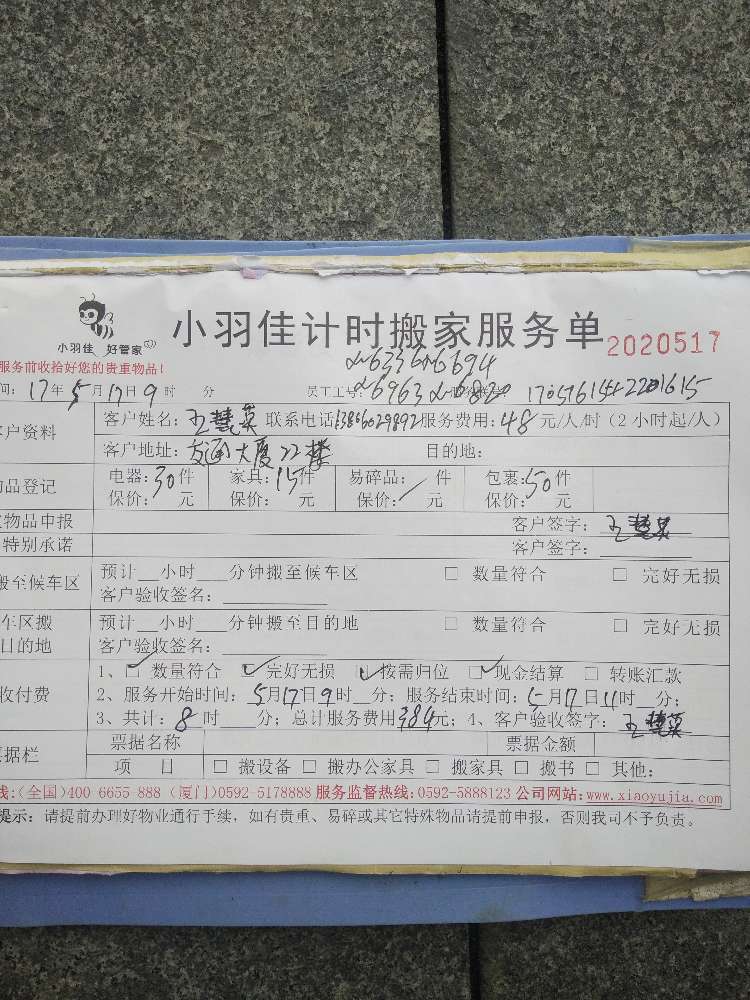 小羽佳 好管家
小羽佳计时搬家服务单 2020517
服务前收拾好您的贵重物品！
间：17年5月17日9时 分 员工工号：
客户姓名：王慧英 联系电话13866029892服务费用：48元/人/时（2小时起/人）
户资料
客户地址：大厦22楼 目的地：
品登记
电器：30件 家具：15件 易碎品：/件 包裹：50件
保价： 元 保价： 元 保价： 元 保价： 元
物品申报 客户签字：王慧英
特别承诺 客户签字：
搬至候车区
预计__小时___分钟搬至候车区 □ 数量符合 □ 完好无损
客户验收签名：
车区搬
目的地
预计__小时___分钟搬至目的地 □ 数量符合 □ 完好无损
客户验收签名：
收付费
1、☑ 数量符合 ☑ 完好无损 ☑ 按需归位 ☑ 现金结算 □ 转账汇款
2、服务开始时间：5月17日9时__分；服务结束时间：5月17日11时__分；
3、共计：8时___分；总计服务费用384元；4、客户验收签字：王慧英
据栏
票据名称 票据金额
项 目 □ 搬设备 □ 搬办公家具 □ 搬家具 □ 搬书 □ 其他：
线：(全国)400 6655 888 (厦门)0592-5178888 服务监督热线：0592-5888123 公司网站：www.xiaoyujia.com
提示：请提前办理好物业通行手续，如有贵重、易碎或其它特殊物品请提前申报，否则我司不予负责。